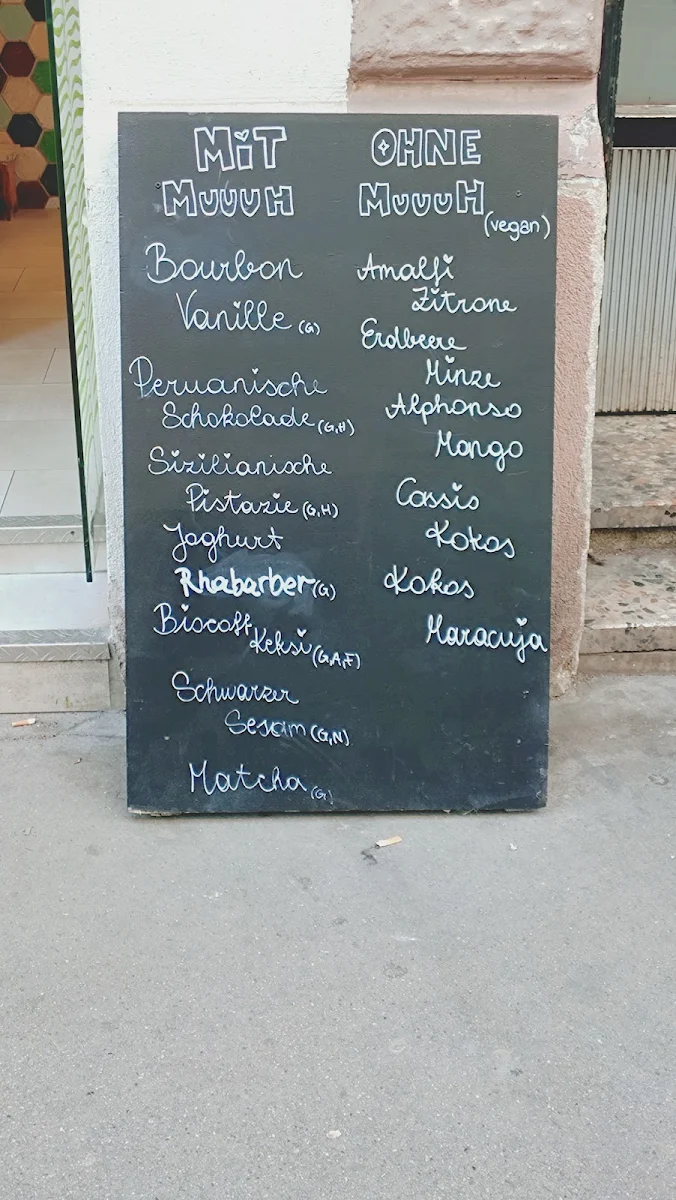 MiT
MUUUH
Bourbon
Vanille (G)
Peruanische
Schokolade (G,H)
Sizilianische
Pistazie (G,H)
Joghurt
Rhabarber (G)
Biscoff
Keksi (G,A,F)
Schwarzer
Sesam (G,N)
Matcha (G)
OHNE
MUUUH
(vegan)
Amalfi
Zitrone
Erdbeere
Minze
Alphonso
Mango
Cassis
Kokos
Kokos
Maracuja